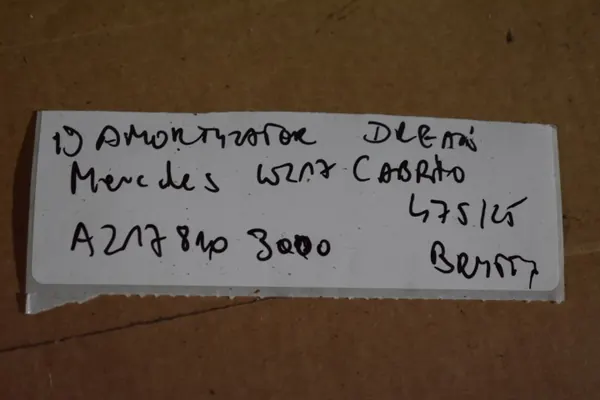 19 AMORTYZATOR DREAN
Mercdes W217 CABRIO
475/25
A217 810 3000